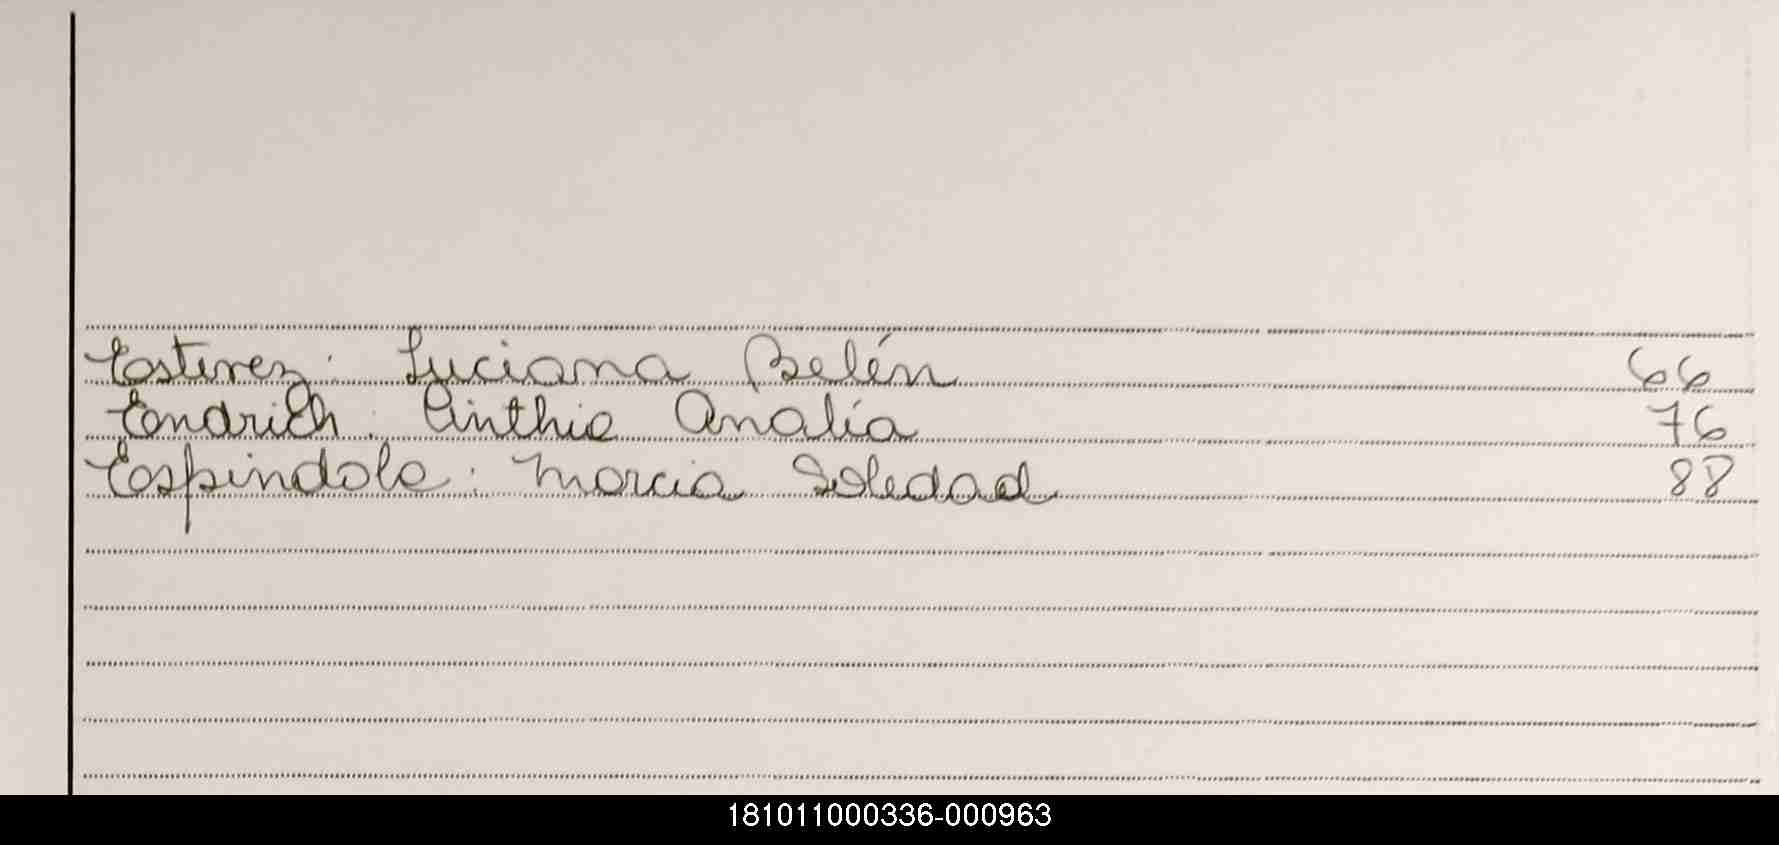 Estevez: Luciana Belén 66
Endrich: Cinthia Analía 76
Espindola: Marcia Soledad 88
181011000336-000963